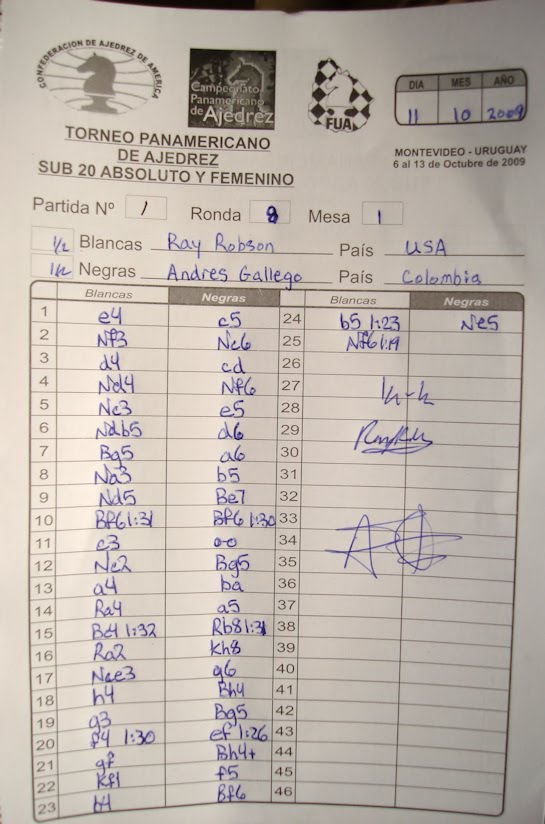 CONFEDERACION DE AJEDREZ DE AMERICA
Campeonato
Panamericano
de Ajedrez
FUA
DIA MES AÑO
11 10 2009
TORNEO PANAMERICANO
DE AJEDREZ
SUB 20 ABSOLUTO Y FEMENINO
MONTEVIDEO - URUGUAY
6 al 13 de Octubre de 2009
Partida Nº 1 Ronda 8 Mesa 1
1/2 Blancas Ray Robson País USA
1/2 Negras Andres Gallego País Colombia
Blancas Negras Blancas Negras
1 e4 c5 24 b5 1:23 Ne5
2 Nf3 Nc6 25 Nf6 1:19
3 d4 cd 26
4 Nd4 Nf6 27 1/2-1/2
5 Nc3 e5 28
6 Ndb5 d6 29
7 Bg5 a6 30
8 Na3 b5 31
9 Nd5 Be7 32
10 Bf6 1:31 Bf6 1:30 33
11 c3 oo 34
12 Nc2 Bg5 35
13 a4 ba 36
14 Ra4 a5 37
15 Bc4 1:32 Rb8 1:31 38
16 Ra2 Kh8 39
17 Nce3 g6 40
18 h4 Bh4 41
19 g3 Bg5 42
20 f4 1:30 ef 1:26 43
21 gf Bh4+ 44
22 Kf1 f5 45
23 b4 Bf6 46